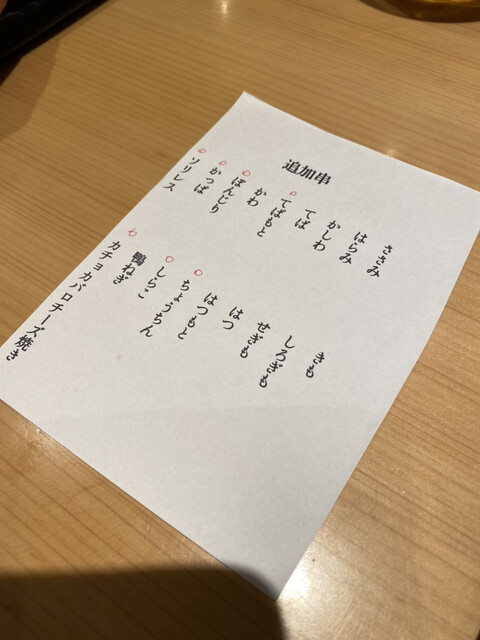 追加串
ささみ
はらみ
かしわ
てば
てばもと
かわ
ぼんじり
かっぱ
ソリレス
きも
しろぎも
せぎも
はつ
はつもと
ちょうちん
しらこ
鴨ねぎ
カチョカバロチーズ焼き